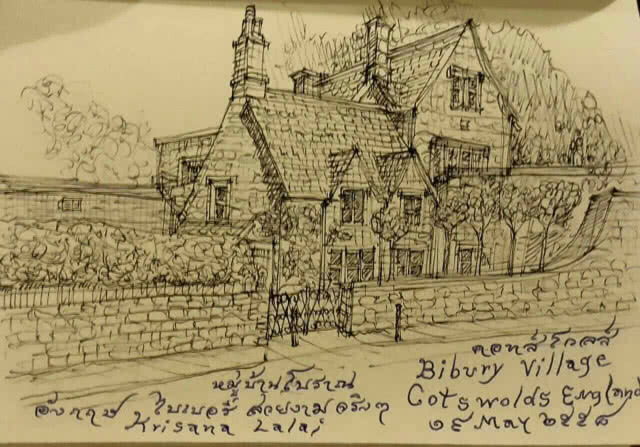 หมู่บ้านโบราณ
อังกฤษ ไบเบอรี่ สวยงามจริงๆ
Krisana Lalai
คอทส์โวลส์
Bibury Village
Cotswolds England
๑๙ May ๒๕๕๘